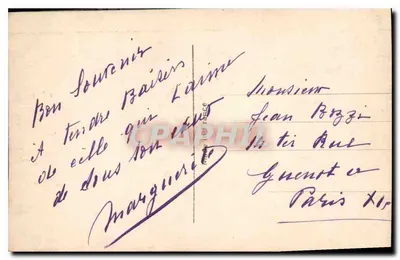 Bon Souvenir
& tendre Baisers
de celle qui t'aime
de tous son cœur
Marguerite
Monsieur
Jean Bozzi
14 ter Rue
Guenot
Paris XI